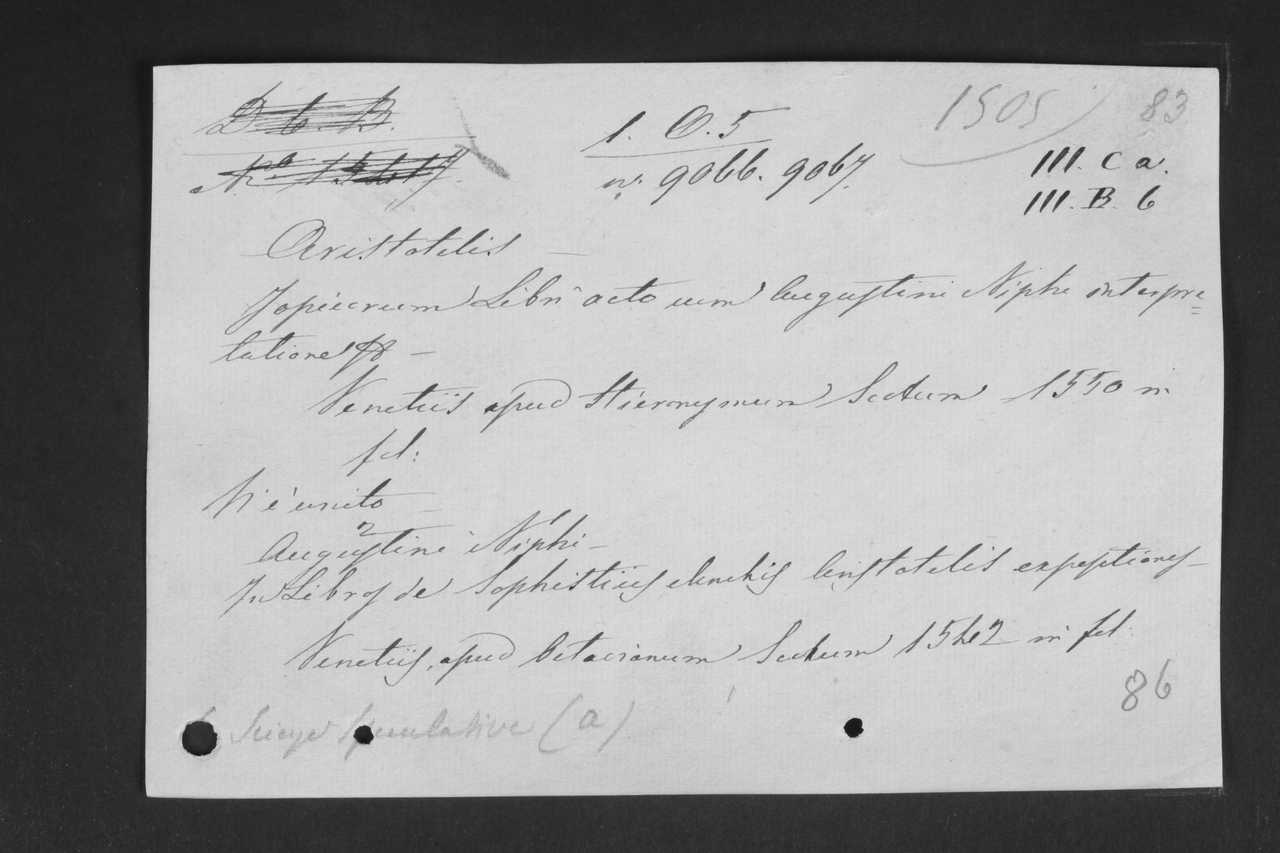 D. 6. B.
1. O. 5
1505
83
N.º
n.º 9066. 9067.
III. C a.
III. B. 6
Aristotelis —
Topicorum Libri octo cum Augustini Niphi interpre=
tatione —
Venetiis apud Hieronymum Scotum 1550 in
fol:
Vi è unito —
Augustini Niphi —
In Libros de Sophisticis elenchis Aristotelis expositiones —
Venetiis, apud Octavianum Scotum 1542 in fol.
86
Scienze speculative (a)